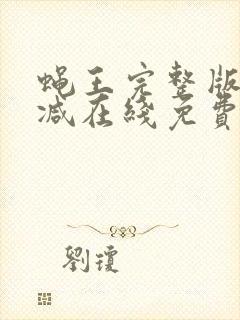 蝇王完整版
减在线免費
劉瓊